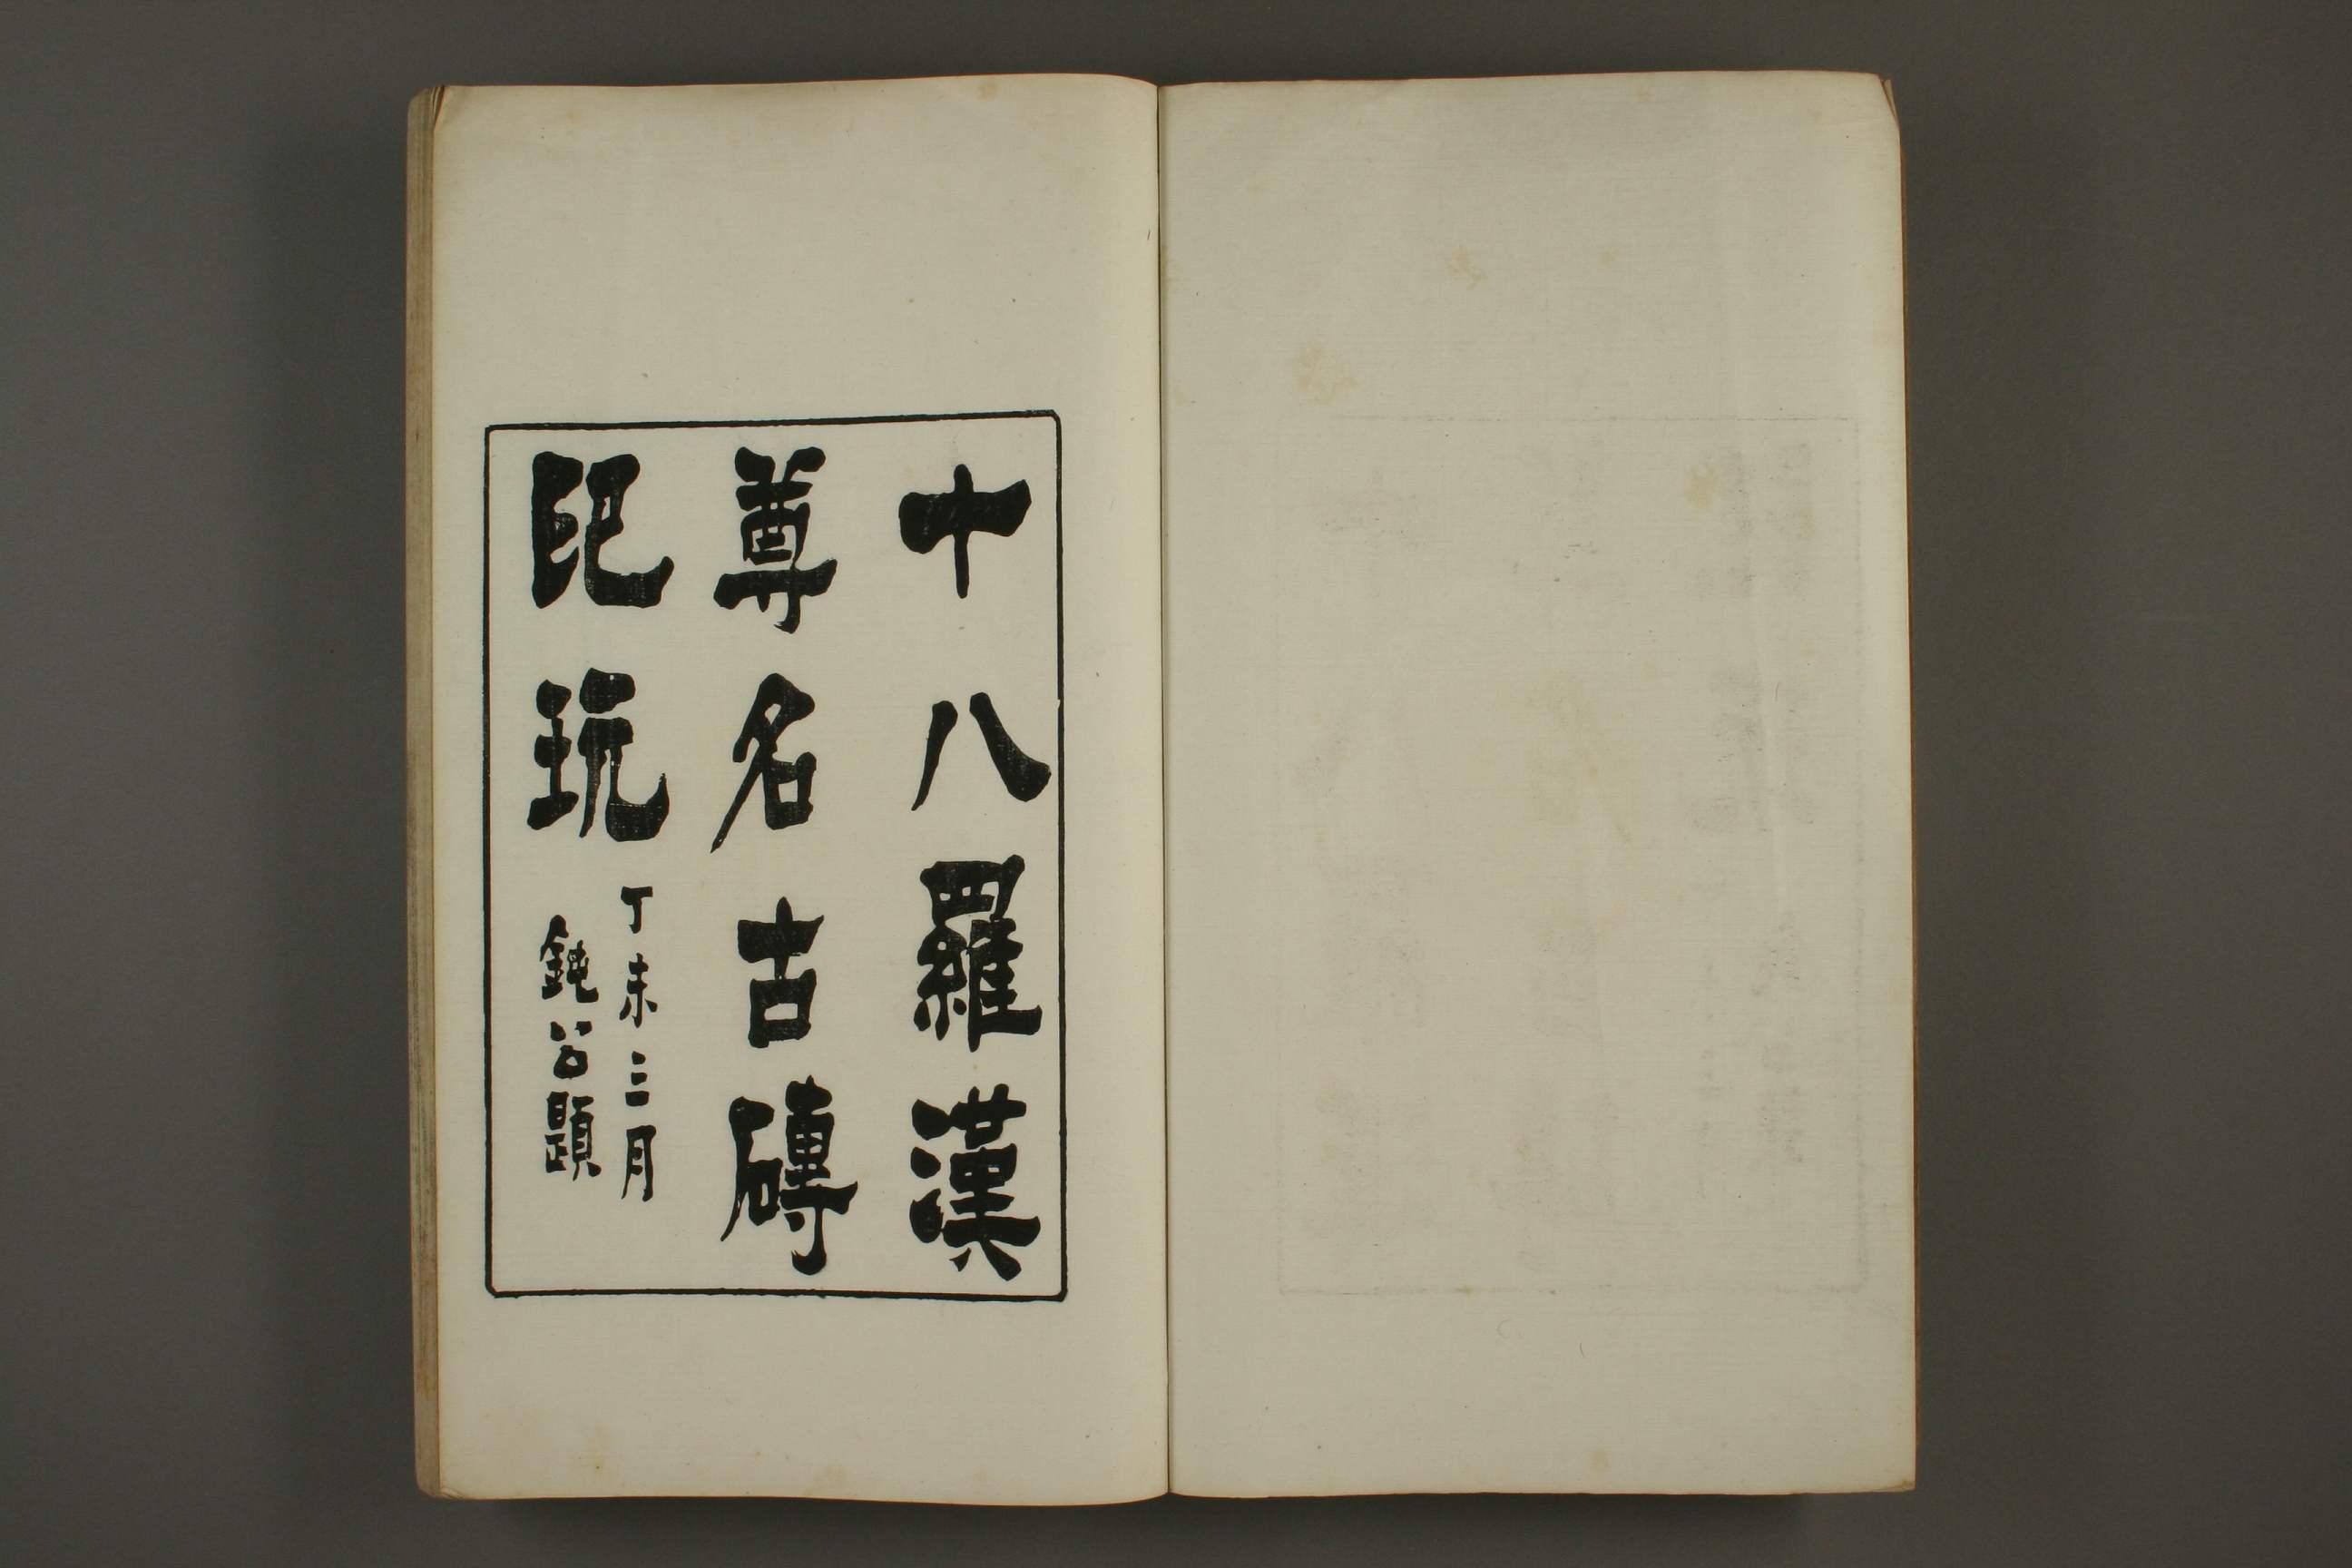 十八羅漢
尊名古磚
巸玩
丁未三月
鈍公題